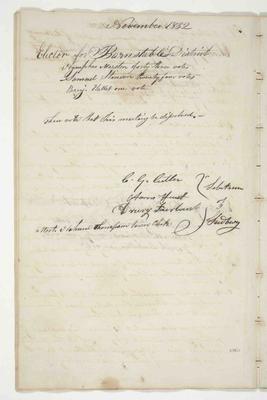 November 1832
Elector for Barnstable District
Nymphas Marston forty three votes
Samuel twenty four votes
Benj. Hallet one vote
then vote that this meeting be dissolved —
C. G. Cutler
Selectmen
of
Sudbury
Drury Fairbank
Attest J. Johnson Thompson town Clerk